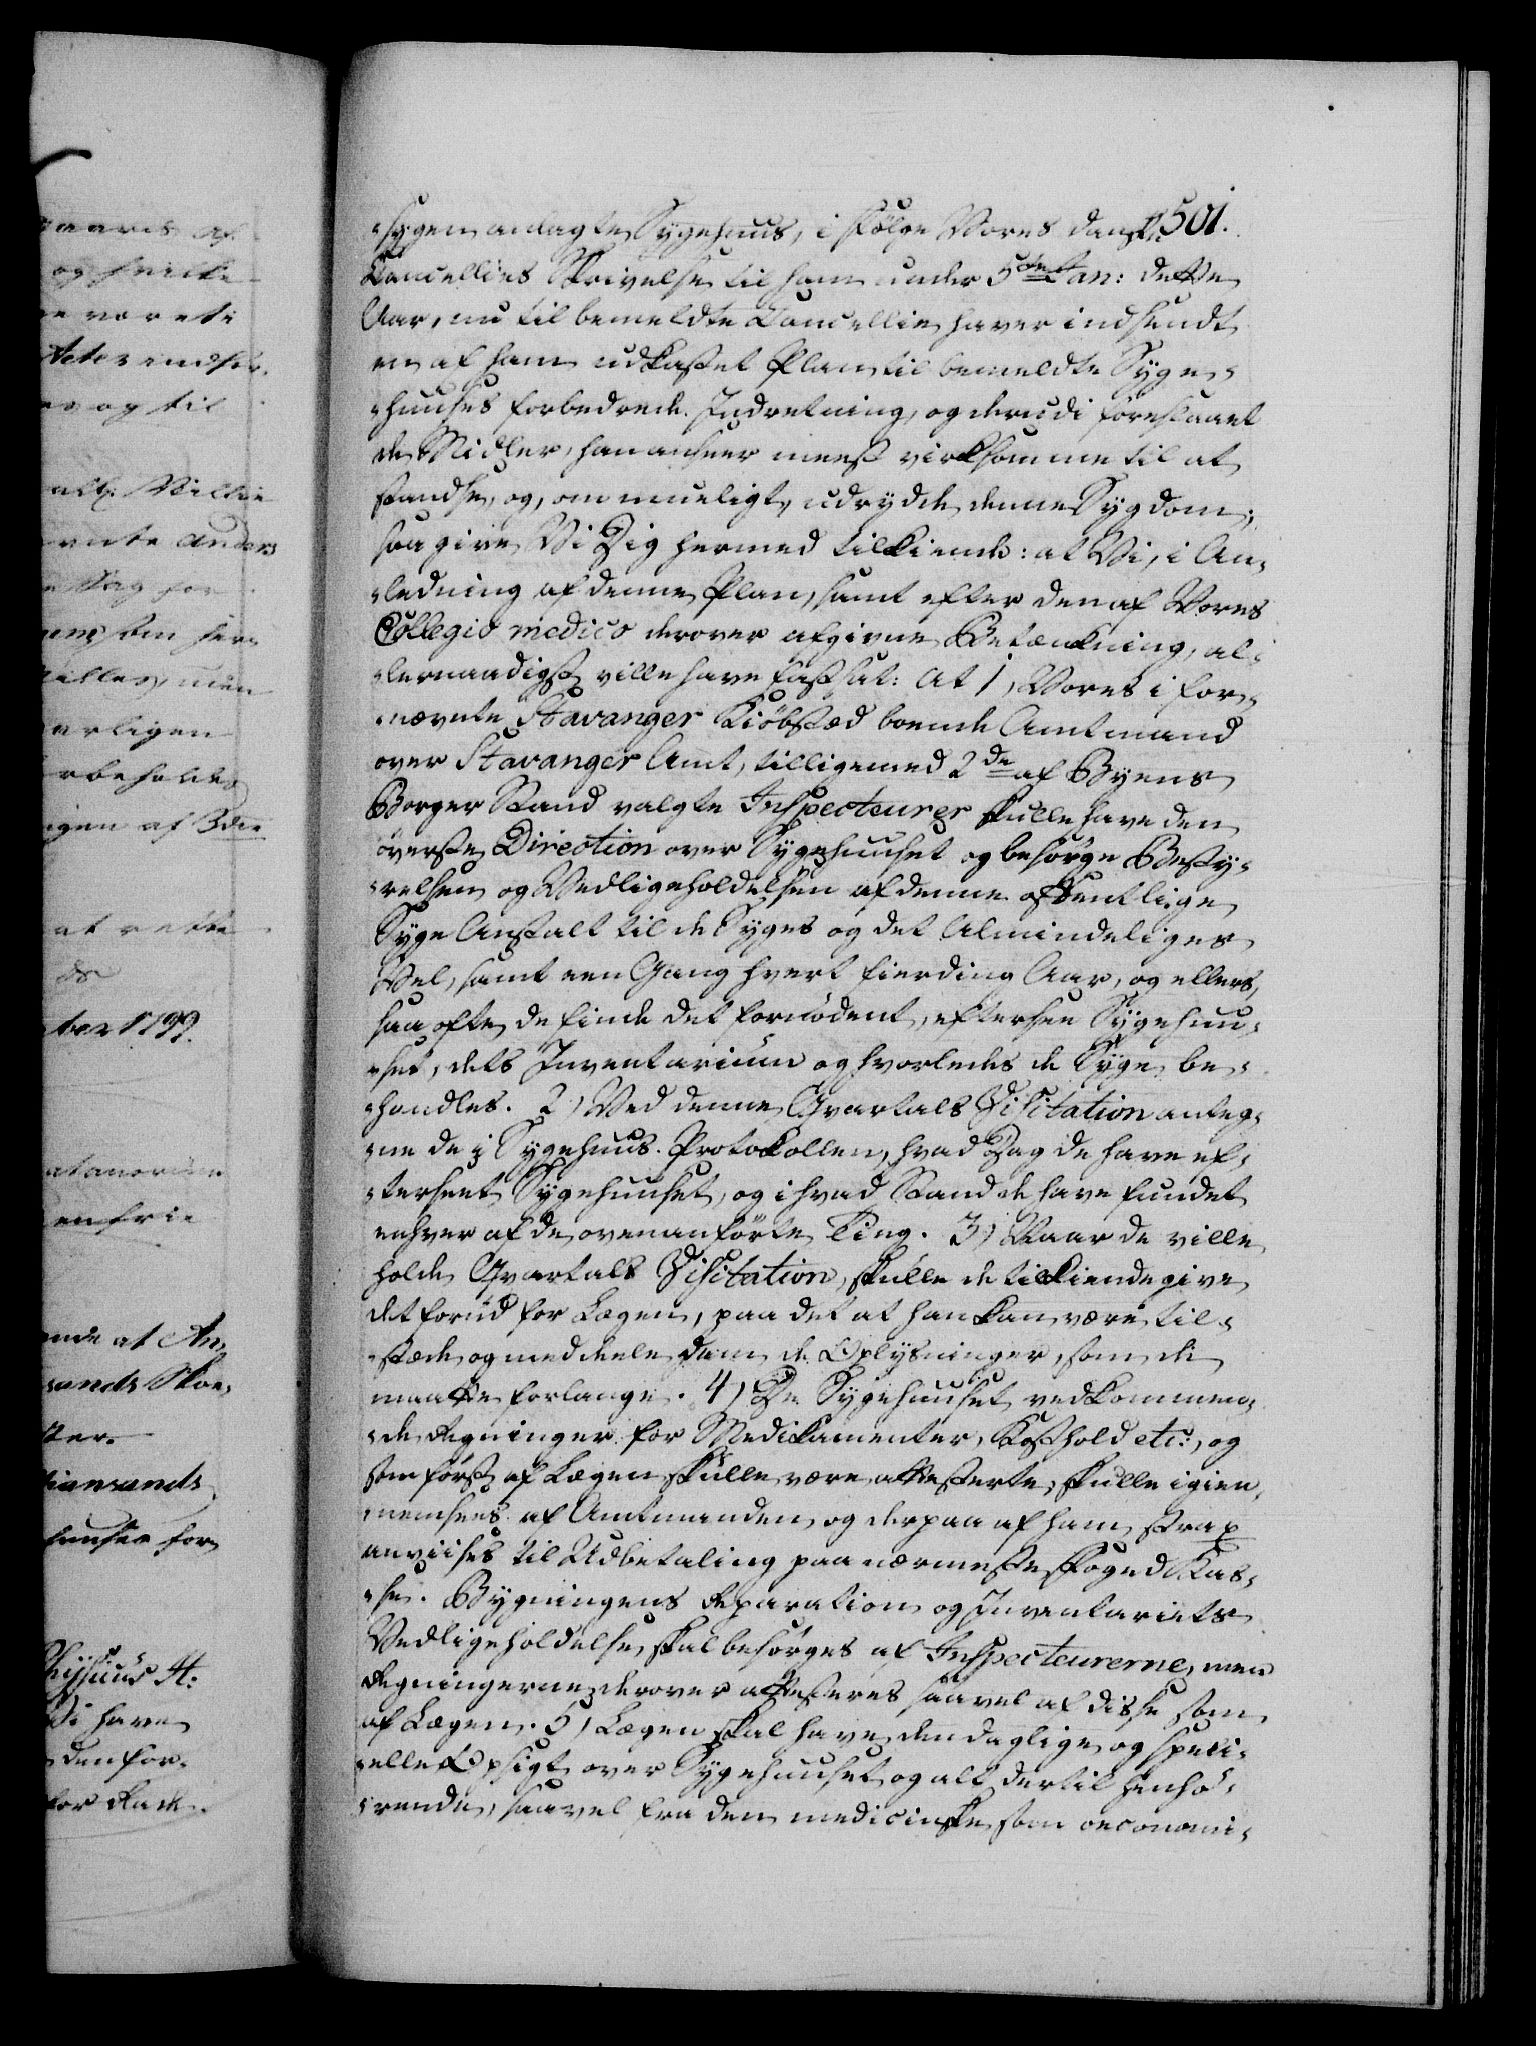 501.
-sygen anlagte Sygehuus, i Følge Vores danske
Cancellies Skrivelse til ham under 5te Jan: dette
Aar, nu til bemeldte Cancellie haver indsendt
en af ham udkastet Plan til bemeldte Syge-
-huuses forbedrede Indretning, og derudi foreslaaet
de Midler, han anseer meest virksomme til at
standse, og, om mueligt, udrydde denne Sygdom;
saa give Vi Dig hermed tilkiende: at Vi, i An-
-ledning af denne Plan, samt efter den af Vores
Collegio medico derover afgivne Betænkning, al-
-lernaadigst ville have fastsat: At 1, Vores i for-
-nævnte Stavanger Kiøbstæd boende Amtmand
over Stavanger Amt, tilligemed 2de af Byens
Borger Stand valgte Inspecteurer skulle have den
øverste Direction over Sygehuuset og besørge Besty-
-relsen og Vedligeholdelsen af denne offentlige
Syge Anstalt til de Syges og det Almindeliges
Vel, samt een Gang hvert fierding Aar, og ellers,
saa ofte de finde det fornødent, eftersee Sygehuu-
-set, dets Inventarium og hvorledes de Syge be-
-handles. 2) Ved denne Qvartals Visitation anteg-
-ne de i Sygehuus-Protokollen, hvad Dag de have ef-
-terseet Sygehuuset, og i hvad Stand de have fundet
enhver af de ovenanførte Ting. 3) Naar de ville
holde Qvartals Visitation, skulle de tilkiendegive
det forud for Lægen, paa det at han kan være til-
-stæde og meddeele dem de Oplysninger, som de
maatte forlange. 4) De Sygehuuset vedkommen-
-de Regninger for Medikamenter, Kosthold etc:, og
som først af Lægen skulle være attesterte, skulle igien-
-nemsees af Amtmanden og derpaa af ham strax
anviises til Udbetaling paa nærmeste Foged Kas-
-se. Bygningens Reparation og Inventariets
Vedligeholdelse skal besørges af Inspecteurerne, men
Regningerne derover attesteres saavel af disse som
af Lægen. 5) Lægen skal have den daglige og speci-
-elle Opsigt over Sygehuuset og alt dertil henhø-
-rende, saavel fra den medicinske som oeconomi-